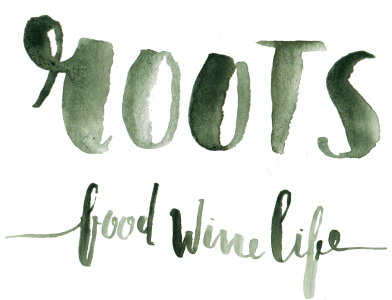 ROOTS
food wine life